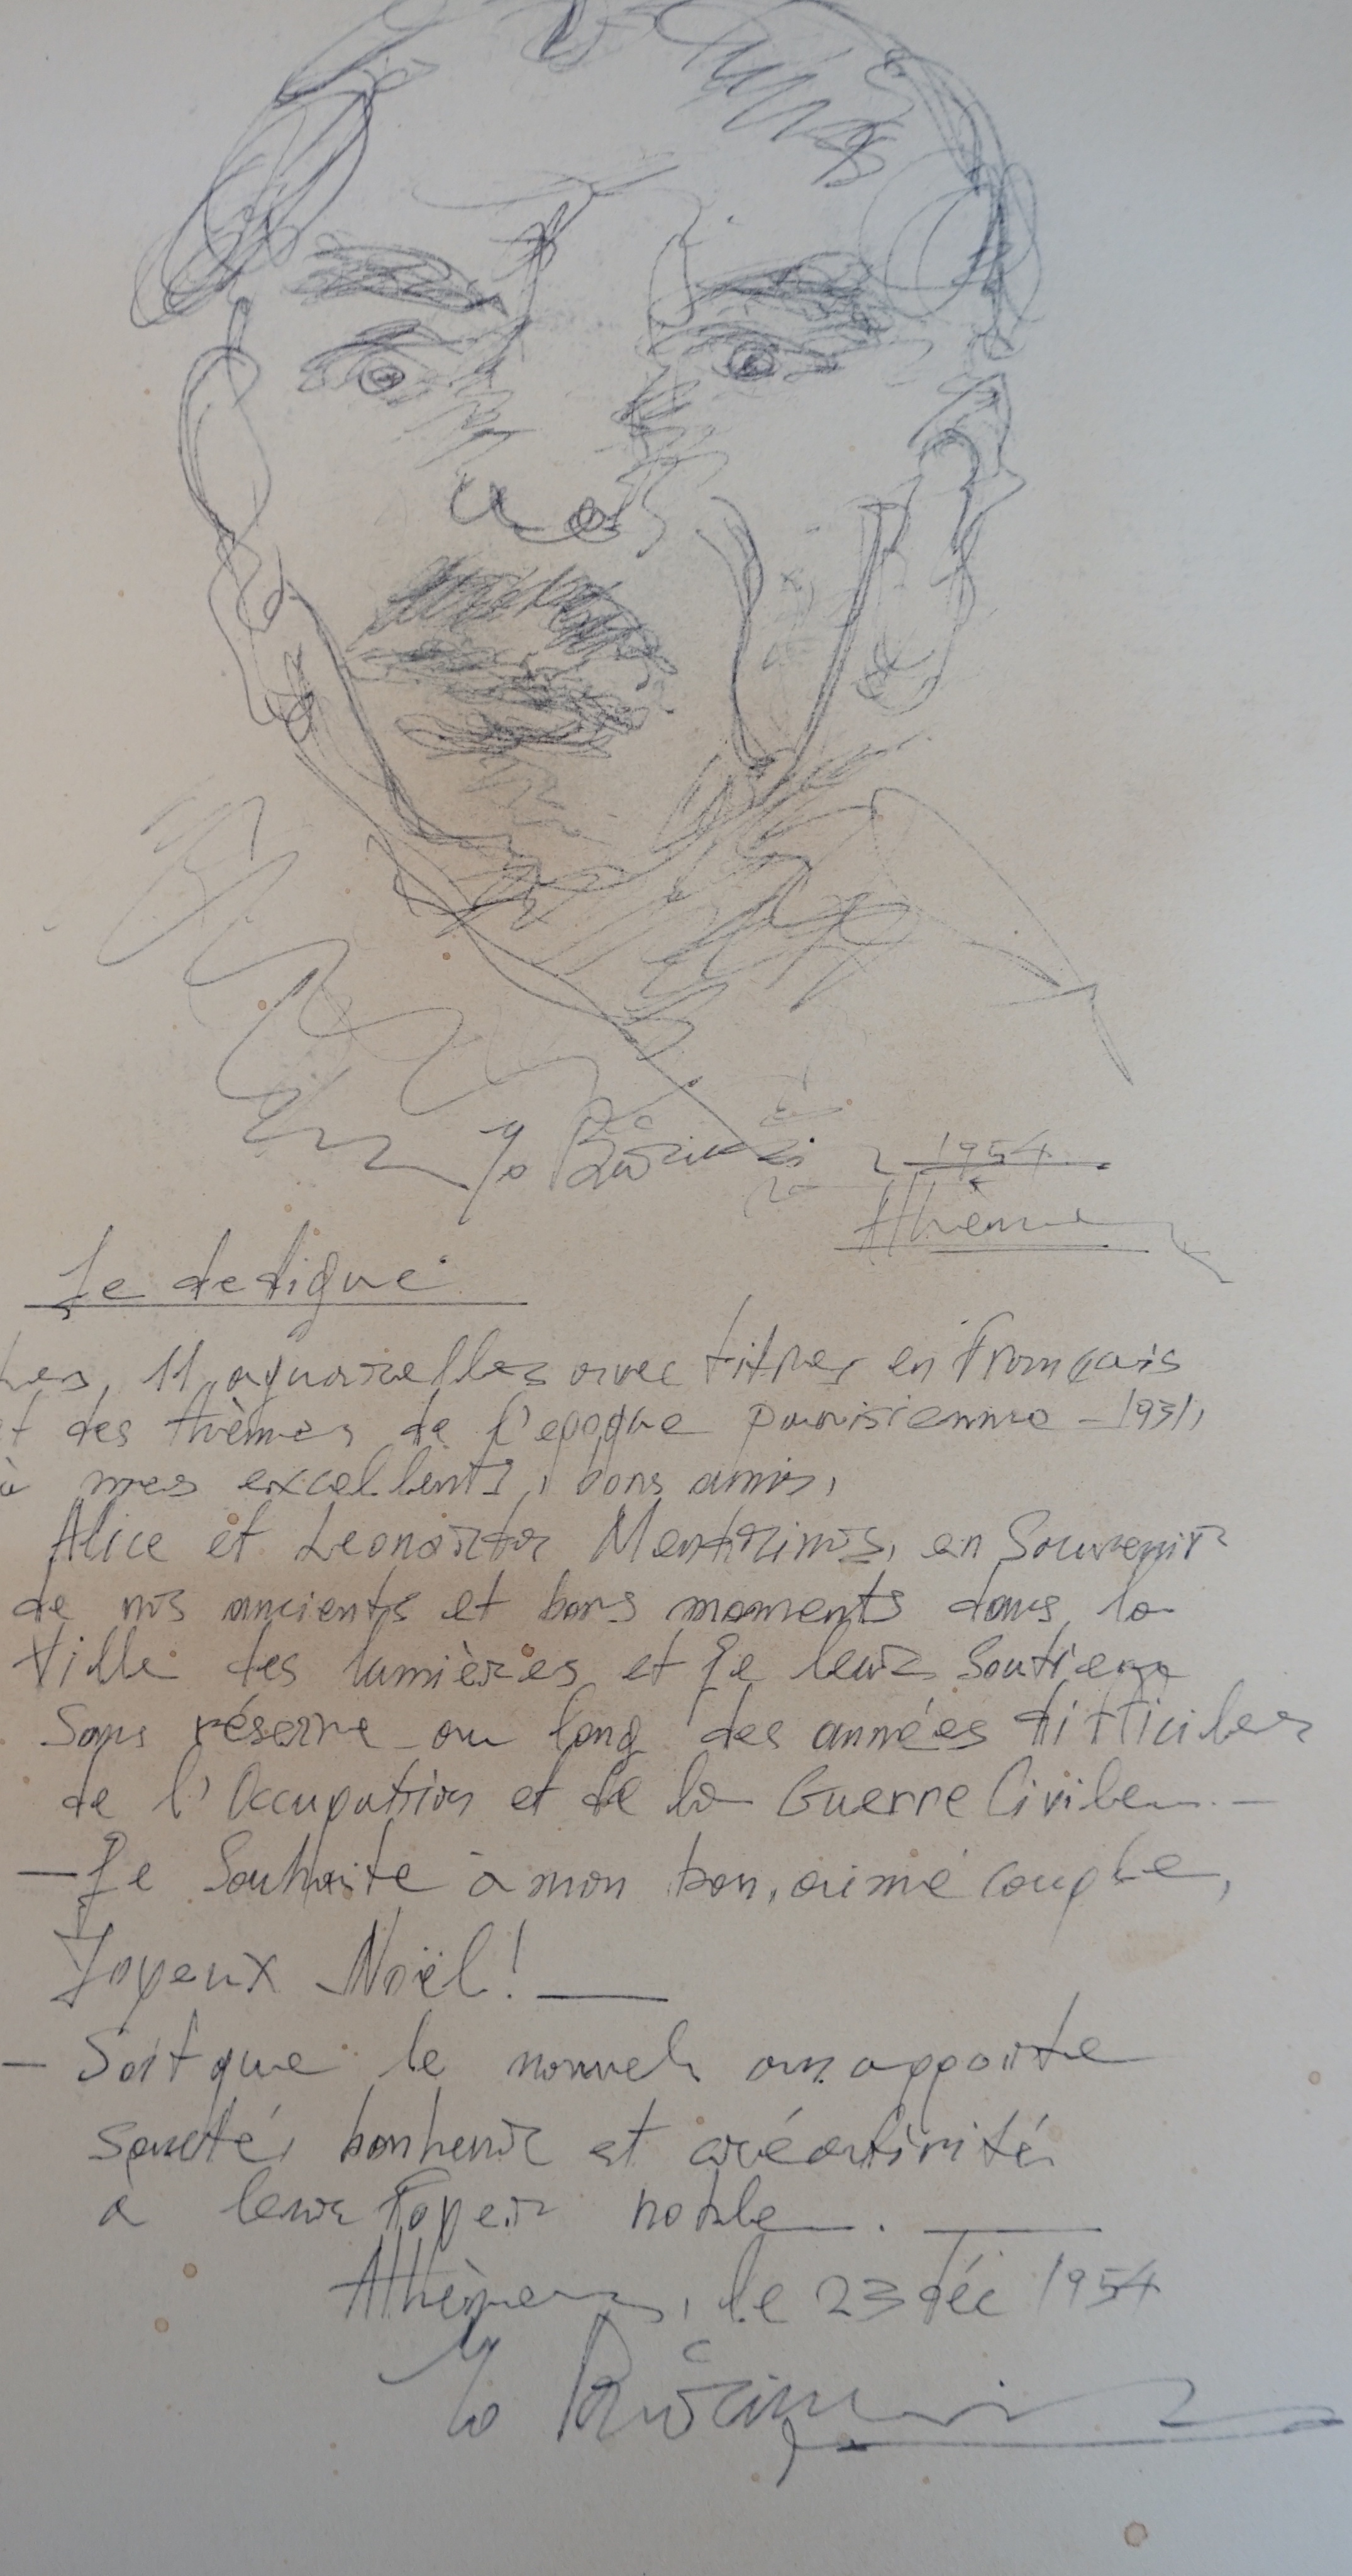 1954
Athènes
Je dedique
Les 11 aquarelles avec titres en Français
et des thèmes de l'epoque parisienne - 1931,
à mes excellents, bons amis,
Alice et Leonardos Mentrinos, en Souvenir
de nos ancients et bons moments dans la
Ville des lumières et de leur Soutien
Sans réserve au long des années difficiles
de l'Occupation et de la Guerre Civile. —
— Je Souhaite à mon bon, aimé couple,
Joyeux Noël! —
— Soit que le nouvel an apporte
santé, bonheur et créativité
à leur Foyer noble. —
Athènes, le 23 déc 1954